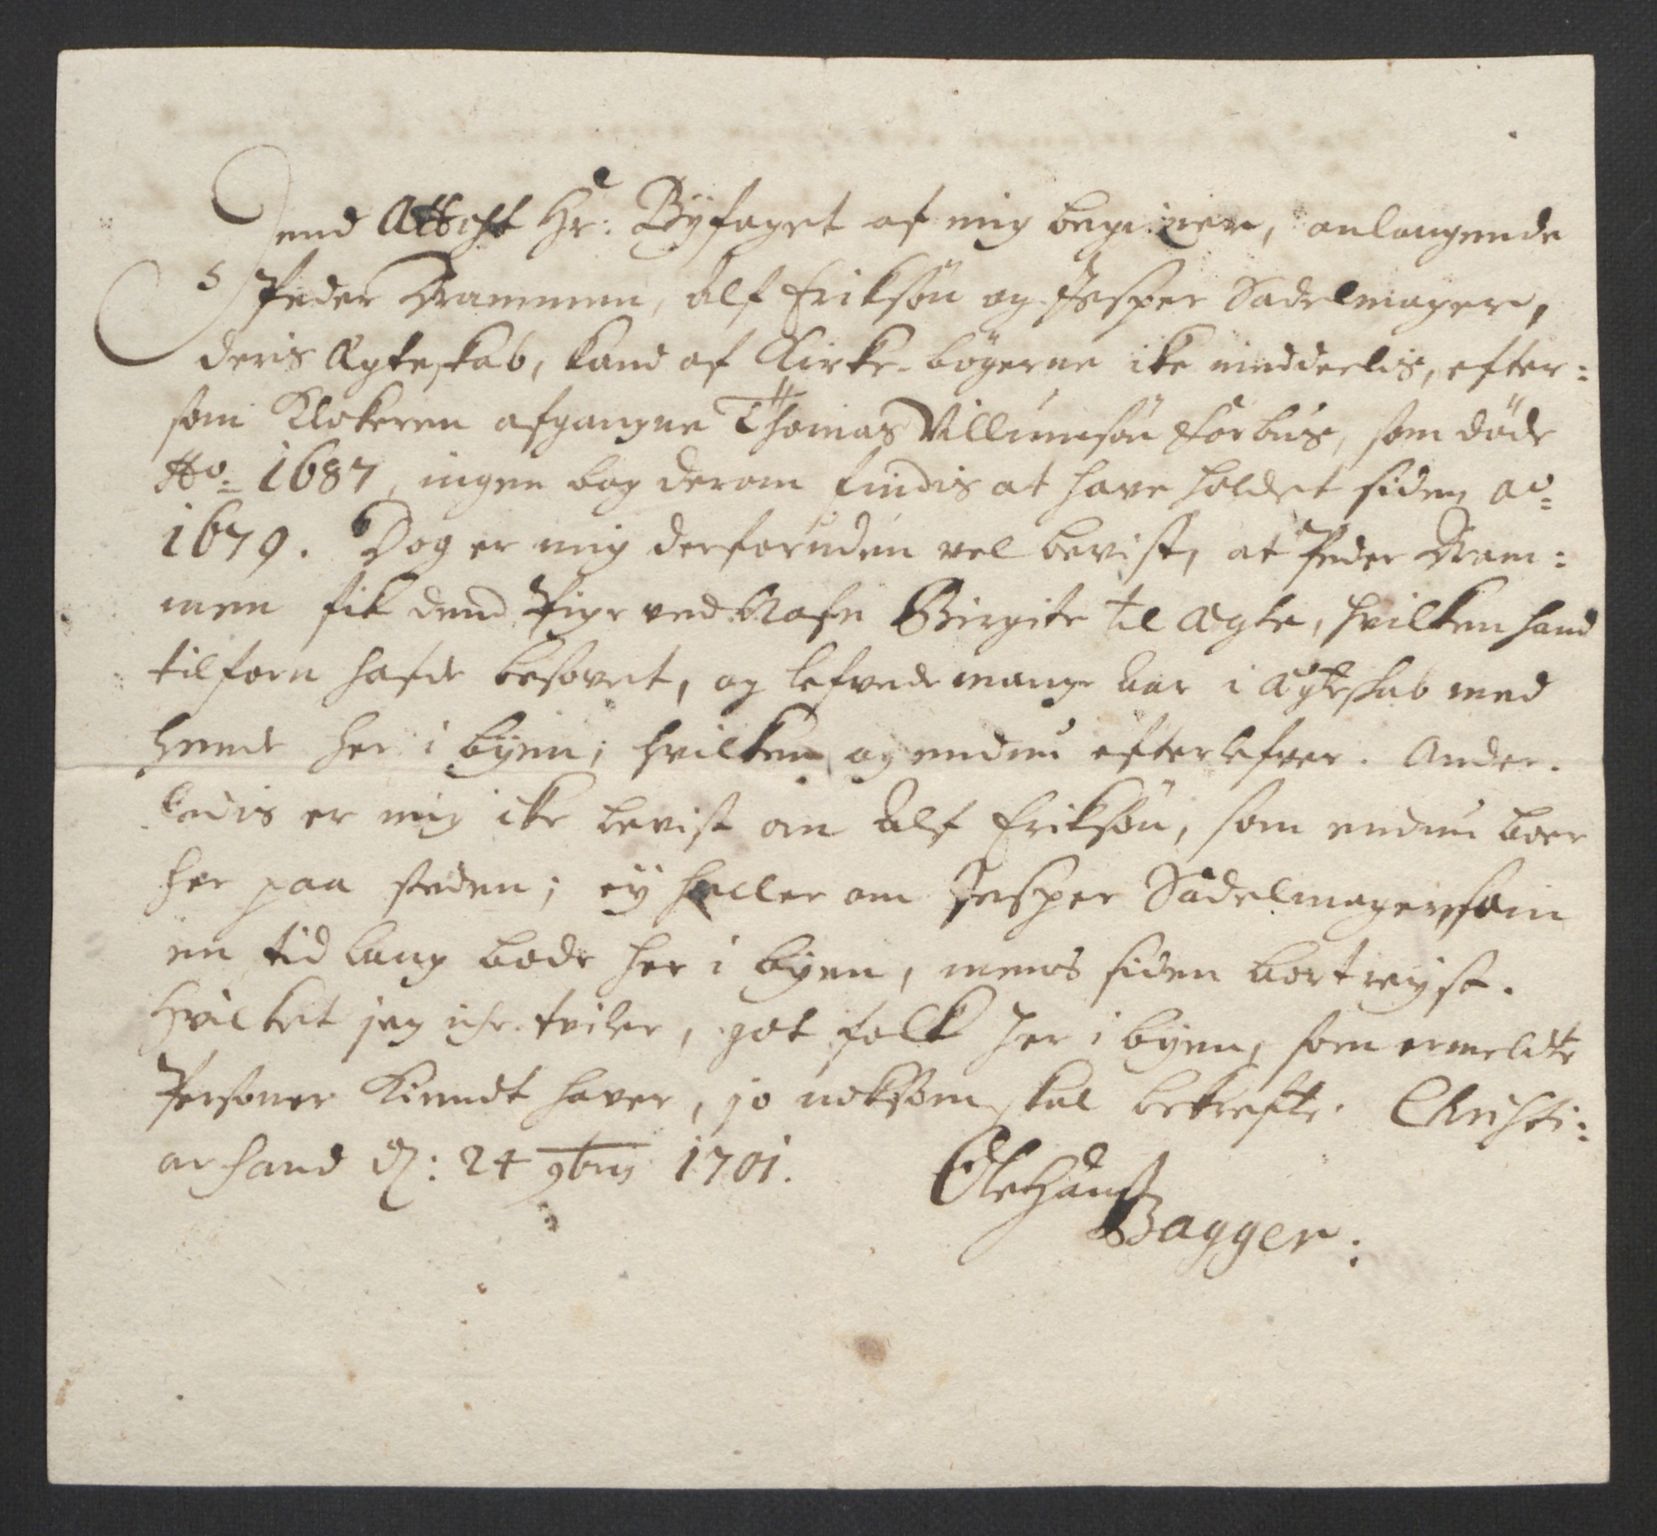 Dend Attest Hr: Byfoget af mig begierer, anlangende
Peder Drammen, Alf Eriksøn og Jesper Sadelmager,
deris Ægteskab, kand af Kirke-bøgerne ike meddeelis, efter:
som Klokeren afgangne Thomas Villumsøn Forbus, som døde
Ao: 1687, ingen bog derom findis at have holdet siden ao:
1679. Dog er mig desforuden vel bevist, at Peder Dram:
men fik dend Pige ved Nafn Birgite til Ægte, hvilken hand
tilforn hafde besovet, og lefvede mange Aar i Ægteskab med
hende her i byen; hvilken og endnu efterlefver. Ander:
ledis er mig ike bevist om Alf Eriksøn, som endnu boer
her paa steden; ey heller om Jesper Sadelmager, som
en tid lang bode her i byen, mens siden bortreyst.
Hvilket jeg iche tviler, got folk her i byen, som ermeldte
Personer Kiendt haver, jo noksom skal bekrefte. Christi:
ansand d: 24 9bris 1701.
Ole Hansß
Bagger: